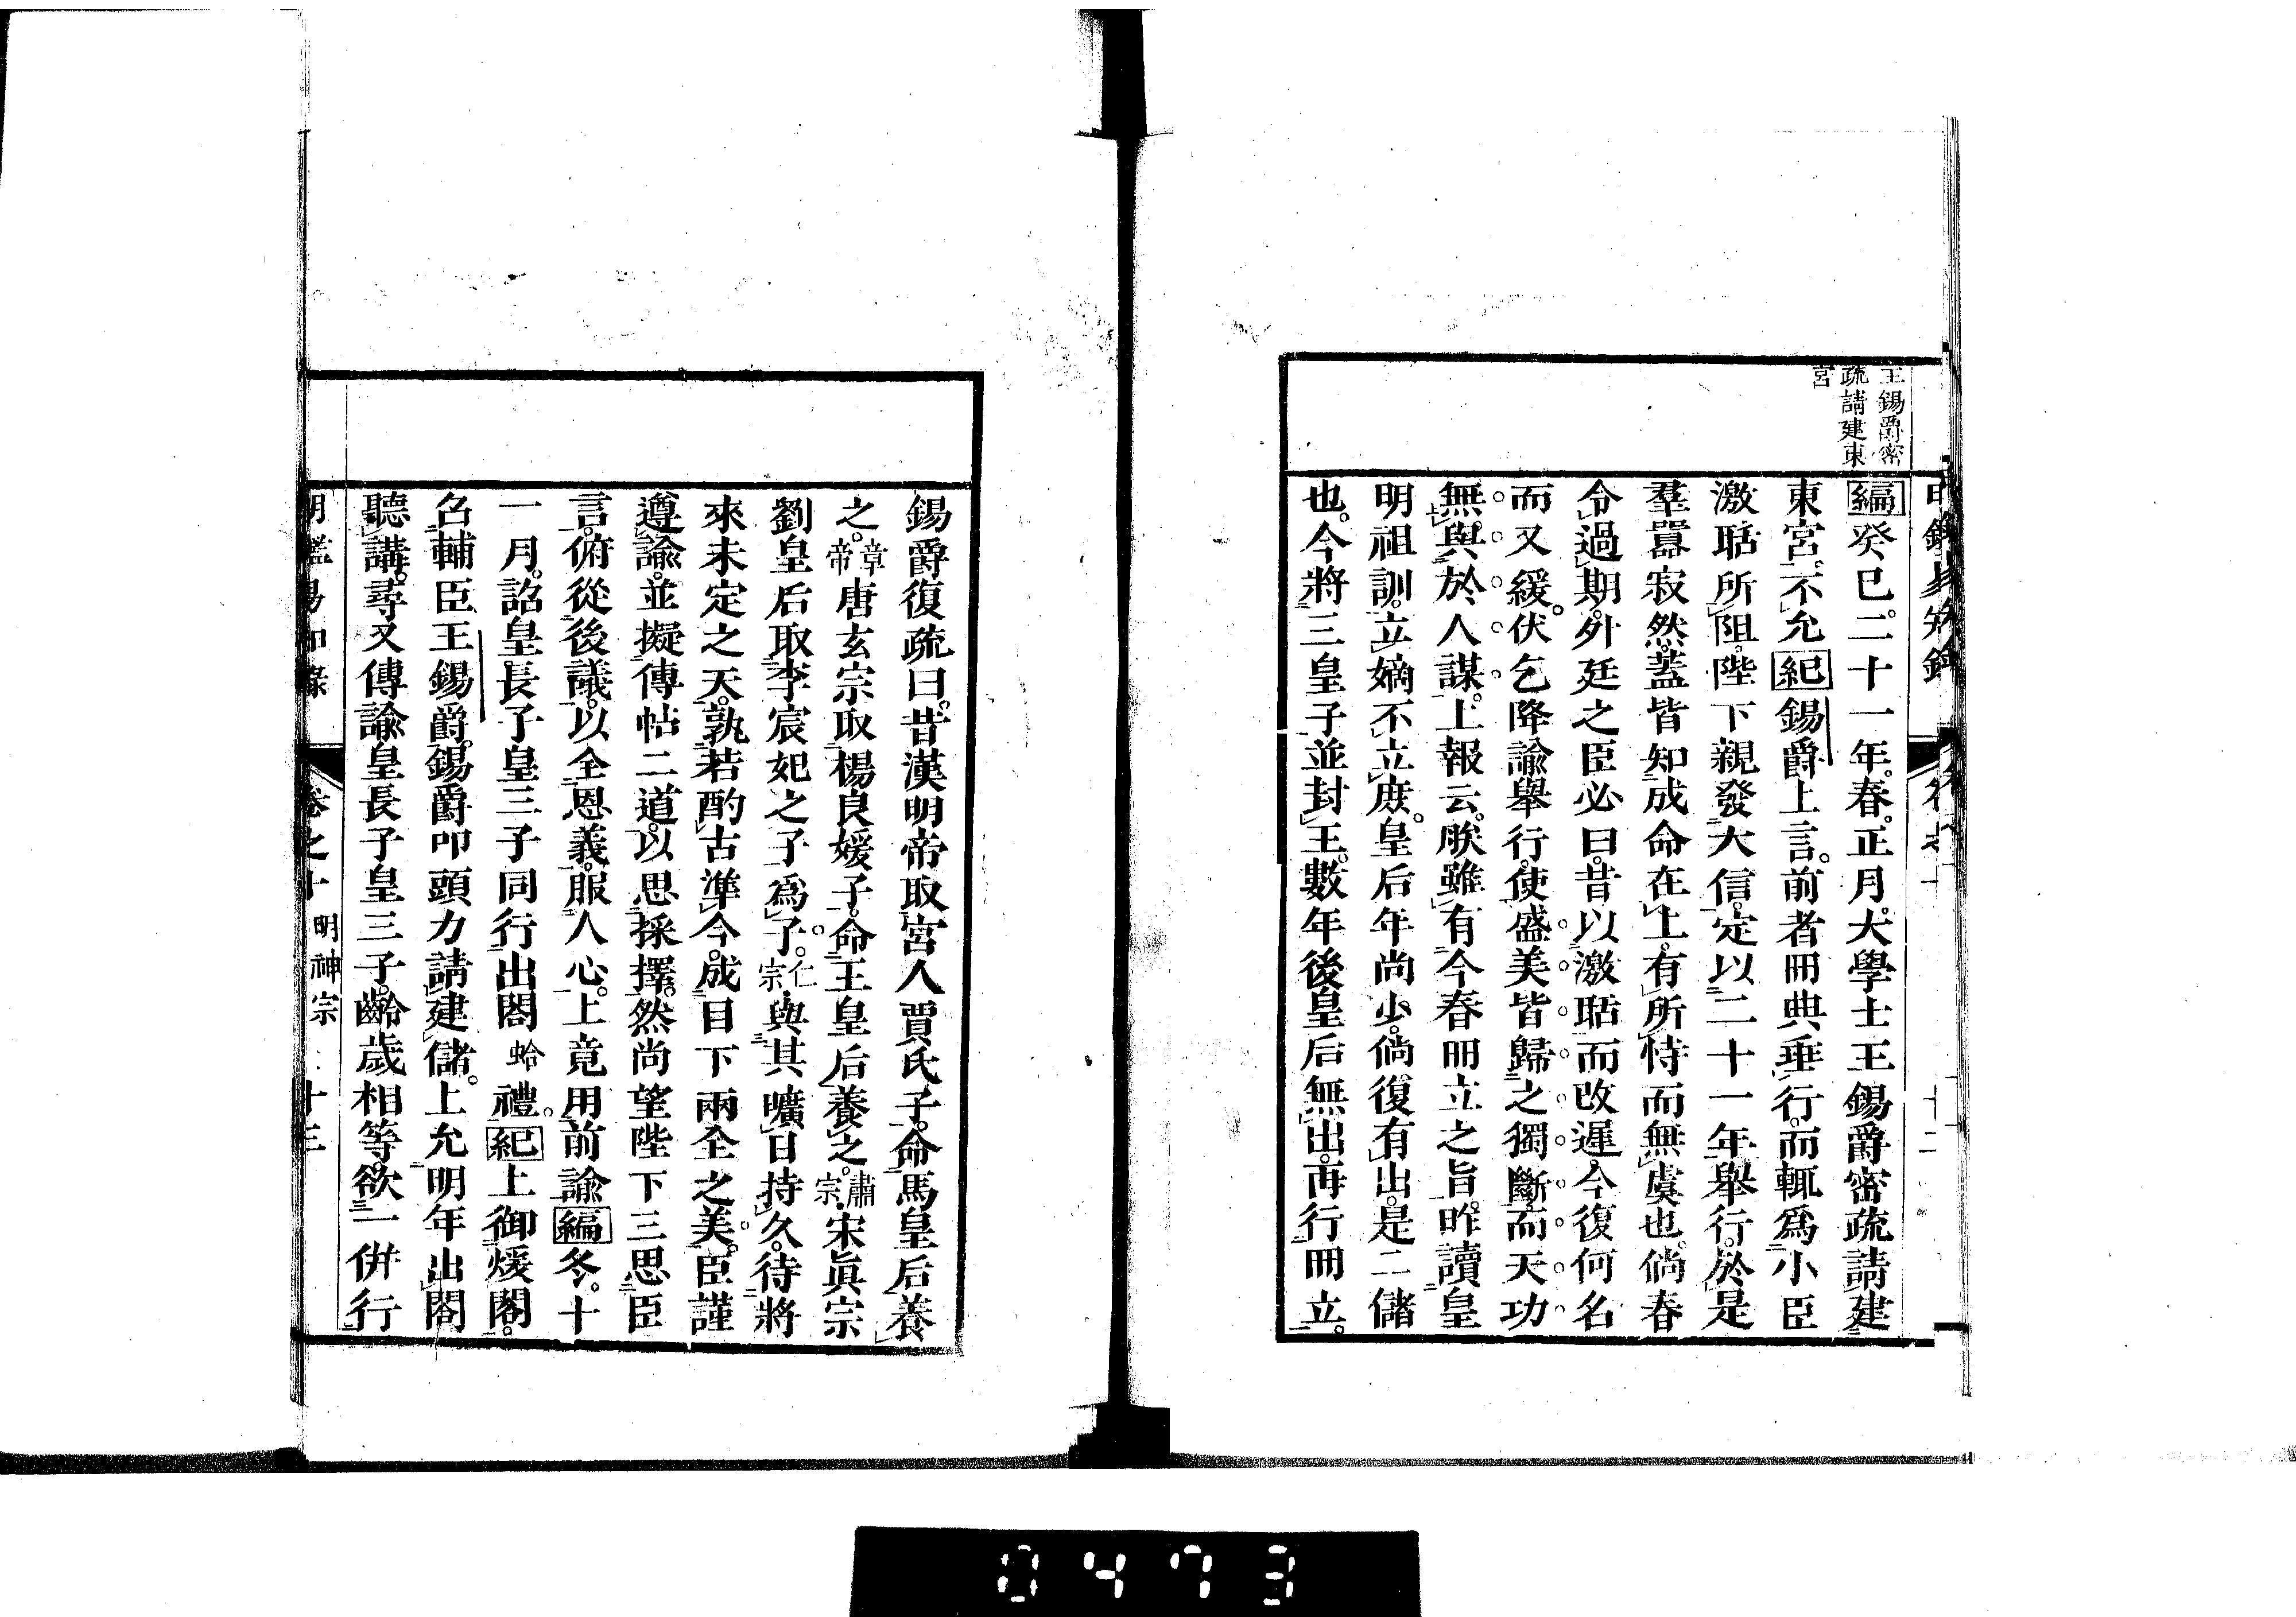 王錫爵密
疏請建東
宮
編癸巳。二十一年。春。正月。大學士王錫爵密疏請建
東宮。不允紀錫爵上言。前者冊典垂行。而輒爲小臣
激聒所阻。陛下親發大信。定以二十一年舉行。於是
羣囂寂然。蓋皆知成命在上。有所恃而無虞也。倘春
令過期。外廷之臣必曰。昔以激聒而改遲。今復何名
而又緩。伏乞降諭舉行。使盛美皆歸之獨斷。而天功
無與於人謀。上報云。朕雖有今春冊立之旨。昨讀皇
明祖訓。立嫡不立庶。皇后年尚少。倘復有出。是二儲
也。今將三皇子並封王。數年後皇后無出。再行冊立。
錫爵復疏曰。昔漢明帝取宮人賈氏子。命馬皇后養
之。章帝唐玄宗取楊良媛子。命王皇后養之。肅宗宋眞宗
劉皇后取李宸妃之子爲子。仁宗與其曠日持久。待將
來未定之天。孰若酌古準今。成目下兩全之美。臣謹
遵諭。並擬傳帖二道。以思採擇。然尚望陛下三思臣
言。俯從後議。以全恩義。服人心。上竟用前諭編冬。十
一月。詔皇長子皇三子同行出閣蛤禮。紀上御煖閣。
召輔臣王錫爵。錫爵叩頭力請建儲。上允明年出閣
聽講。尋又傳諭皇長子皇三子。齡歲相等。欲一併行
明鑑易知錄 卷之十 明神宗 十三